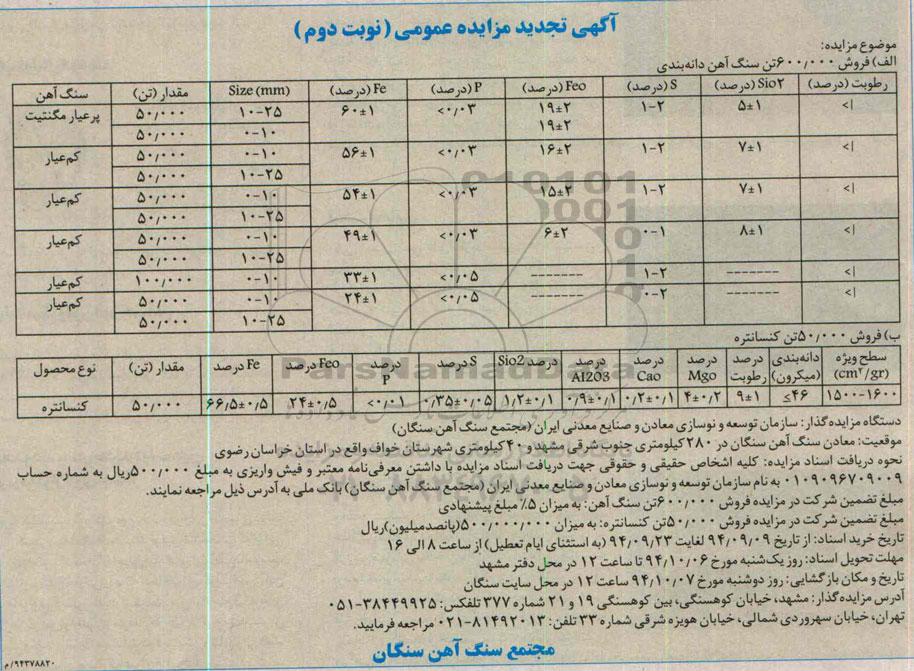 آگهی تجدید مزایده عمومی (نوبت دوم)
موضوع مزایده:
الف) فروش ۶۰۰٫۰۰۰تن سنگ آهن دانه‌بندی
سنگ آهن | مقدار (تن) | Size (mm) | Fe (درصد) | P (درصد) | Feo (درصد) | S (درصد) | Sio۲ (درصد) | رطوبت (درصد)
پرعیار مگنتیت | ۵۰٫۰۰۰ | ۱۰-۲۵ | ۶۰±۱ | <۰٫۰۳ | ۱۹±۲ | ۱-۲ | ۵±۱ | <۱
۵۰٫۰۰۰ | ۰-۱۰ | ۱۹±۲
کم‌عیار | ۵۰٫۰۰۰ | ۰-۱۰ | ۵۶±۱ | <۰٫۰۳ | ۱۶±۲ | ۱-۲ | ۷±۱ | <۱
۵۰٫۰۰۰ | ۱۰-۲۵
کم‌عیار | ۵۰٫۰۰۰ | ۰-۱۰ | ۵۴±۱ | <۰٫۰۳ | ۱۵±۲ | ۱-۲ | ۷±۱ | <۱
۵۰٫۰۰۰ | ۱۰-۲۵
کم‌عیار | ۵۰٫۰۰۰ | ۰-۱۰ | ۴۹±۱ | <۰٫۰۳ | ۶±۲ | ۰-۱ | ۸±۱ | <۱
۵۰٫۰۰۰ | ۱۰-۲۵
کم‌عیار | ۱۰۰٫۰۰۰ | ۰-۱۰ | ۳۳±۱ | <۰٫۰۵ | ------- | ۱-۲ | ------- | <۱
کم‌عیار | ۵۰٫۰۰۰ | ۰-۱۰ | ۲۴±۱ | <۰٫۰۵ | ------- | ۰-۲ | ------- | <۱
۵۰٫۰۰۰ | ۱۰-۲۵
ب) فروش ۵۰٫۰۰۰تن کنسانتره
نوع محصول | مقدار (تن) | Fe درصد | Feo درصد | درصد P | S درصد | درصد Sio2 | درصد Al2O3 | درصد Cao | درصد Mgo | درصد رطوبت | دانه‌بندی (میکرون) | سطح ویژه (cm۲/gr)
کنسانتره | ۵۰٫۰۰۰ | ۶۶٫۵±۰٫۵ | ۲۴±۰٫۵ | <۰٫۰۱ | ۰٫۳۵±۰٫۰۵ | ۱٫۲±۰٫۱ | ۰٫۹±۰٫۱ | ۰٫۲±۰٫۱ | ۴±۰٫۲ | ۹±۱ | ≤۴۶ | ۱۵۰۰-۱۶۰۰
دستگاه مزایده‌گذار: سازمان توسعه و نوسازی معادن و صنایع معدنی ایران (مجتمع سنگ آهن سنگان)
موقعیت: معادن سنگ آهن سنگان در ۲۸۰ کیلومتری جنوب شرقی مشهد و ۴۰ کیلومتری شهرستان خواف واقع در استان خراسان رضوی
نحوه دریافت اسناد مزایده: کلیه اشخاص حقیقی و حقوقی جهت دریافت اسناد مزایده با داشتن معرفی‌نامه معتبر و فیش واریزی به مبلغ ۵۰۰٫۰۰۰ریال به شماره حساب
۰۱۰۹۰۹۶۷۰۹۰۰۹ به نام سازمان توسعه و نوسازی معادن و صنایع معدنی ایران (مجتمع سنگ آهن سنگان) بانک ملی به آدرس ذیل مراجعه نمایند.
مبلغ تضمین شرکت در مزایده فروش ۶۰۰٫۰۰۰تن سنگ آهن: به میزان ۵٪ مبلغ پیشنهادی
مبلغ تضمین شرکت در مزایده فروش ۵۰٫۰۰۰تن کنسانتره: به میزان ۵۰۰٫۰۰۰٫۰۰۰(پانصدمیلیون)ریال
تاریخ خرید اسناد: از تاریخ ۹۴٫۰۹٫۰۹ لغایت ۹۴٫۰۹٫۲۳ (به استثنای ایام تعطیل) از ساعت ۸ الی ۱۶
مهلت تحویل اسناد: روز یک‌شنبه مورخ ۹۴٫۱۰٫۰۶ تا ساعت ۱۲ در محل دفتر مشهد
تاریخ و مکان بازگشایی: روز دوشنبه مورخ ۹۴٫۱۰٫۰۷ ساعت ۱۲ در محل سایت سنگان
آدرس مزایده‌گذار: مشهد، خیابان کوهسنگی، بین کوهسنگی ۱۹ و ۲۱ شماره ۳۷۷ تلفکس: ۳۸۴۴۹۹۲۵-۰۵۱
تهران، خیابان سهروردی شمالی، خیابان هویزه شرقی شماره ۳۳ تلفن: ۸۱۴۹۲۰۱۳-۰۲۱ مراجعه فرمایید.
مجتمع سنگ آهن سنگان
۹۴۳۷۸۸۲۰/م
ParsNamadData